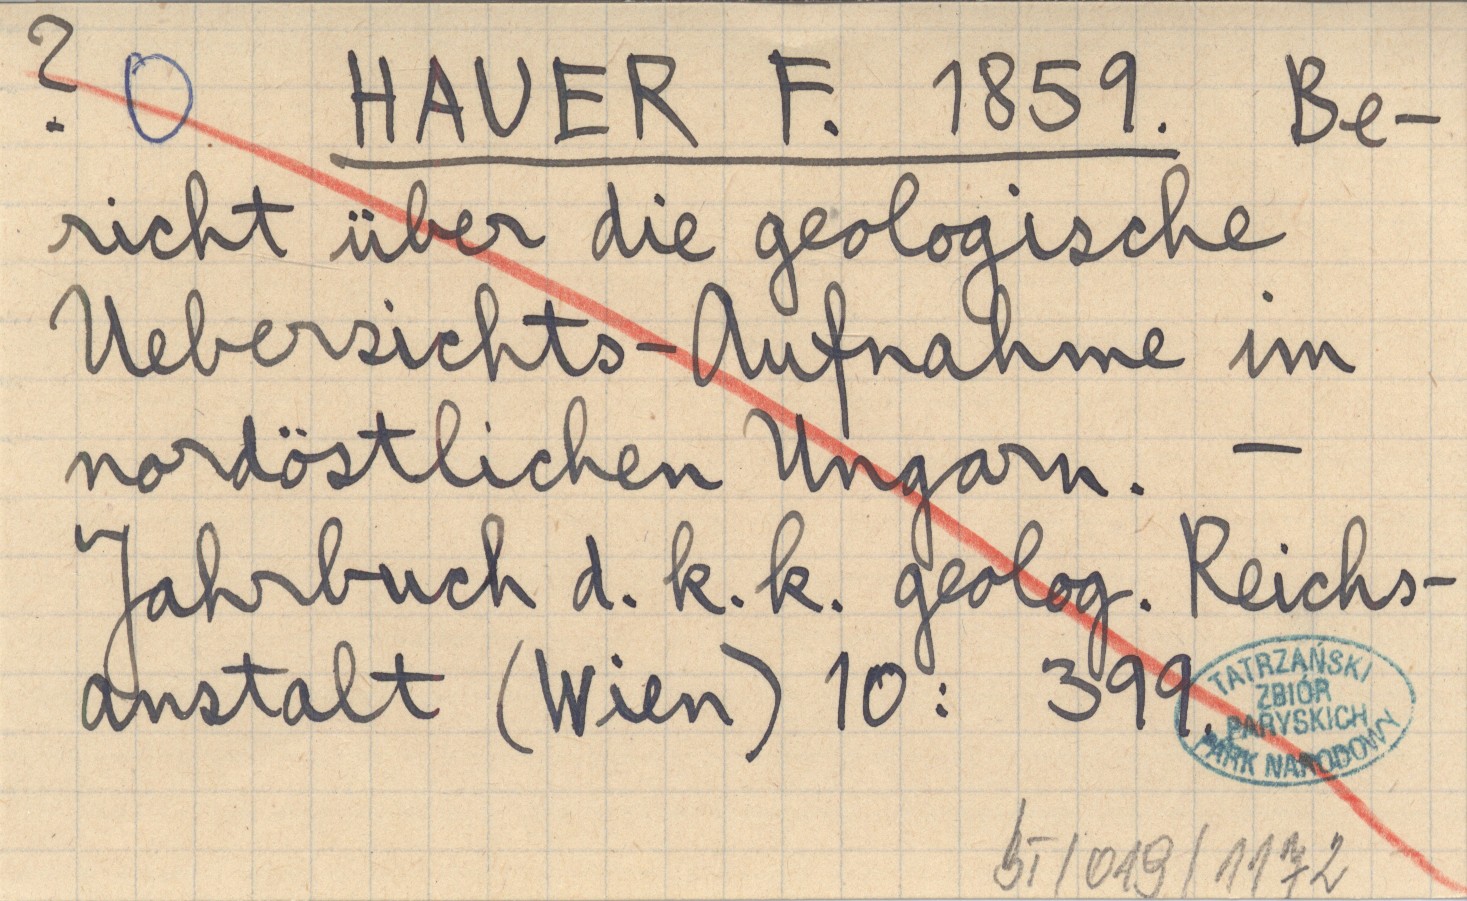 ? O HAUER F. 1859. Be-
richt über die geologische
Uebersichts-Aufnahme im
nordöstlichen Ungarn. —
Jahrbuch d. k. k. geolog. Reichs-
anstalt (Wien) 10: 399.
TATRZAŃSKI
ZBIÓR
PARYSKICH
PARK NARODOWY
/019/1172